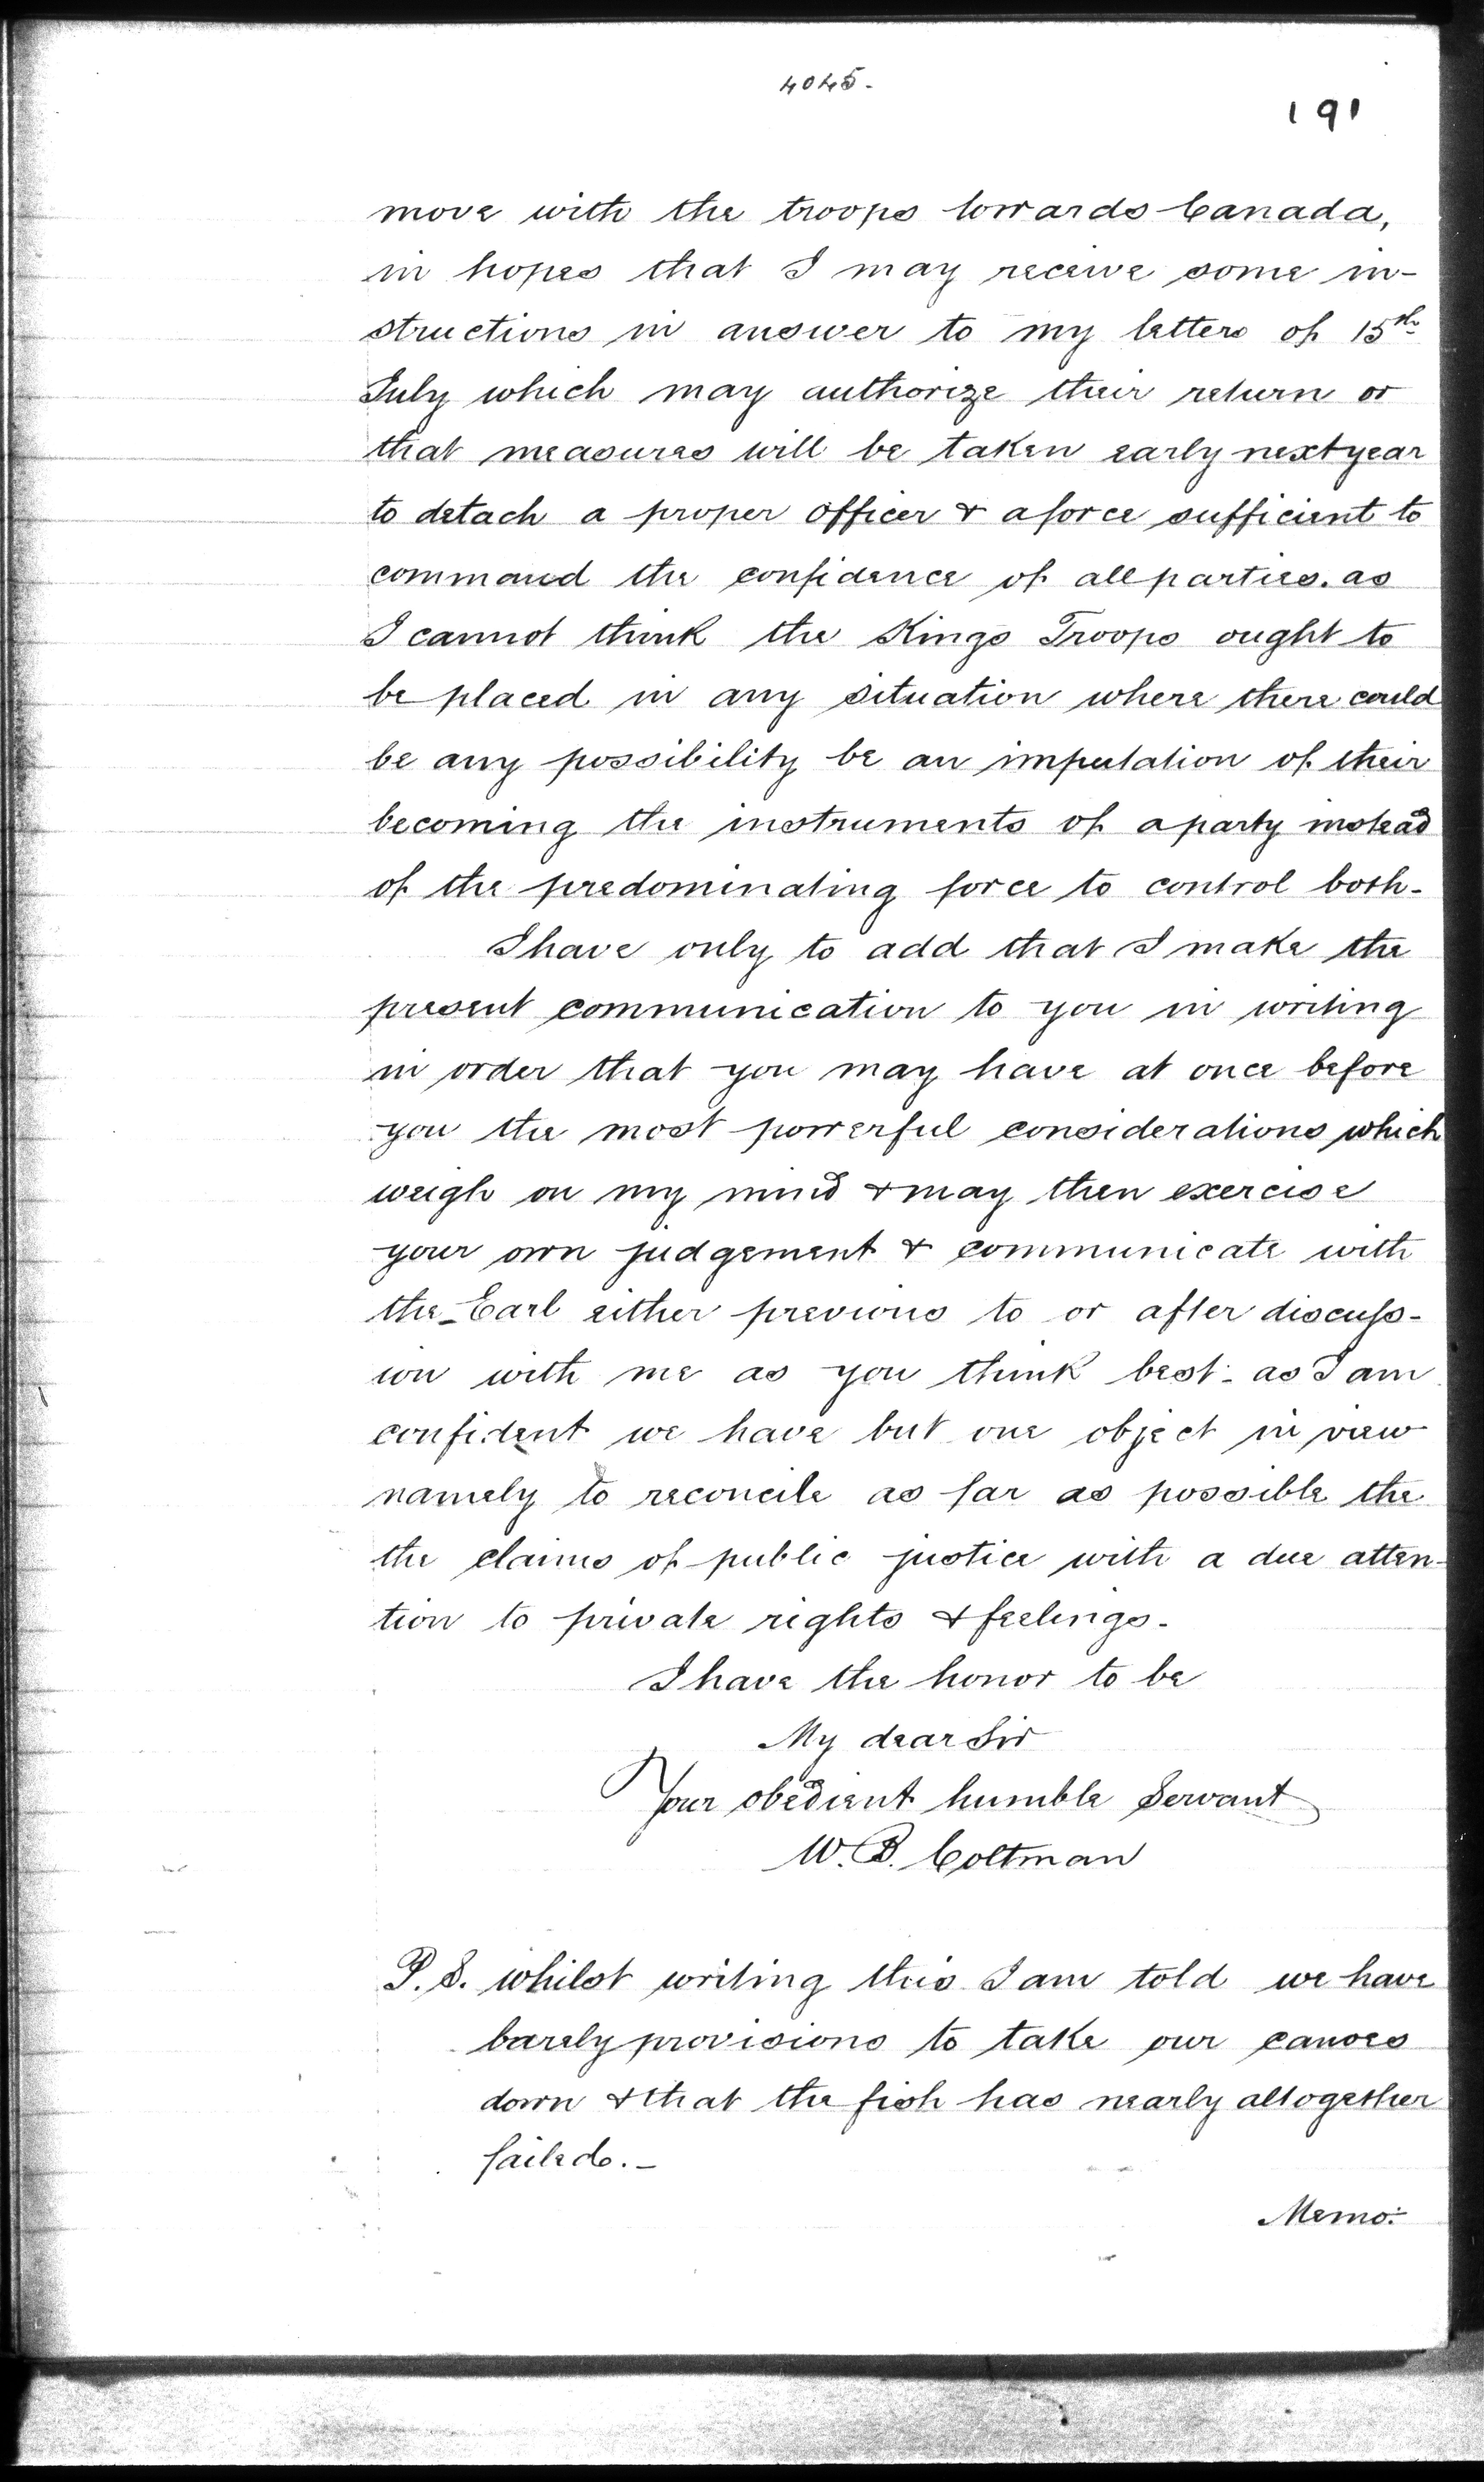 4045.
191
move with the troops towards Canada,
in hopes that I may receive some in-
structions in answer to my letters of 15th
July which may authorize their return or
that measures will be taken early next year
to detach a proper officer & a force sufficient to
command the confidence of all parties. as
I cannot think the Kings Troops ought to
be placed in any situation where there could
be any possibility be an imputation of their
becoming the instruments of a party instead
of the predominating force to control both-
I have only to add that I make the
present communication to you in writing
in order that you may have at once before
you the most powerful considerations which
weigh on my mind & may then exercise
your own judgement & communicate with
the Earl either previous to or after discuss-
ion with me as you think best - as I am
confident we have but one object in view
namely to reconcile as far as possible the
the claims of public justice with a due atten-
tion to private rights & feelings-
I have the honor to be
My dear Sir
Your obedient humble Servant
W. B. Coltman
P. S. whilst writing this I am told we have
barely provisions to take our canoes
down & that the fish has nearly altogether
failed.-
Memo: